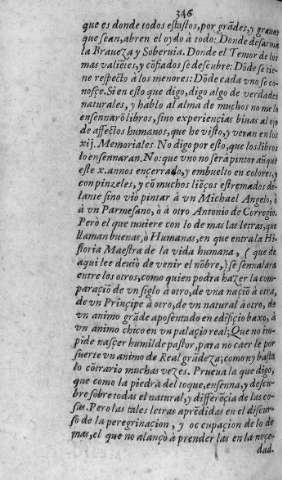 346
que es donde todos estos, por grãdes, y graues
que sean, abren el oydo à todo: Donde desarma
la Braueza y Soberuia. Donde el Temor de los
mas valiẽtes, y cõfiados se descubre: Dõde se tie-
ne respecto à los menores: Dõde cada vno se co-
nosçe. Si en esto que digo, digo algo de verdades
naturales, y hablo al alma de muchos no me lo
ensennarõ libros, sino experiencias biuas al ojo
de affectos humanos, que he visto, y veran en los
xij. Memoriales. No digo por esto, que los libros
lo ensennaran. No: que vno no será pintor aũque
este x. annos encerrado, y embuelto en colores, y
con pinzeles, y cõ muchos liẽços estremados de-
lante sino vio pintar à vn Michael Angelo, ò
à vn Parmesano, ò à otro Antonio de Corregio.
Però el que vuiere con lo de mas las letras, que
llaman buenas, ò Humanas, en que entra la Hi-
storia Maestra de la vida humana, (que de
aqui lee deuio de venir el nõbre,) se sennalara
entre los otros, como quien podra hazer la com-
paraçiõ de vn siglo à otro, de vna naçiõ à otra,
de vn Prinçipe à otro, de vn natural à otro, de
vn animo grãde aposentado en edifiçio baxo, à
vn animo chico en vn palaçio real; Que no im-
pide nasçer humilde pastor, para no caer le por
suerte vn animo de Real grãdeza; como ny basta
lo cõtrario muchas vezes. Prueua la que digo,
que como la piedra del toque, ensenna, y descu-
bre sobre todas el natural, y differẽçia de las co-
sas. Pero las tales letras aprẽdidas en el discur-
so de la peregrinaçion, y occupaçion de lo de
mas, el que no alançò à prender las en la noçe-
dad.